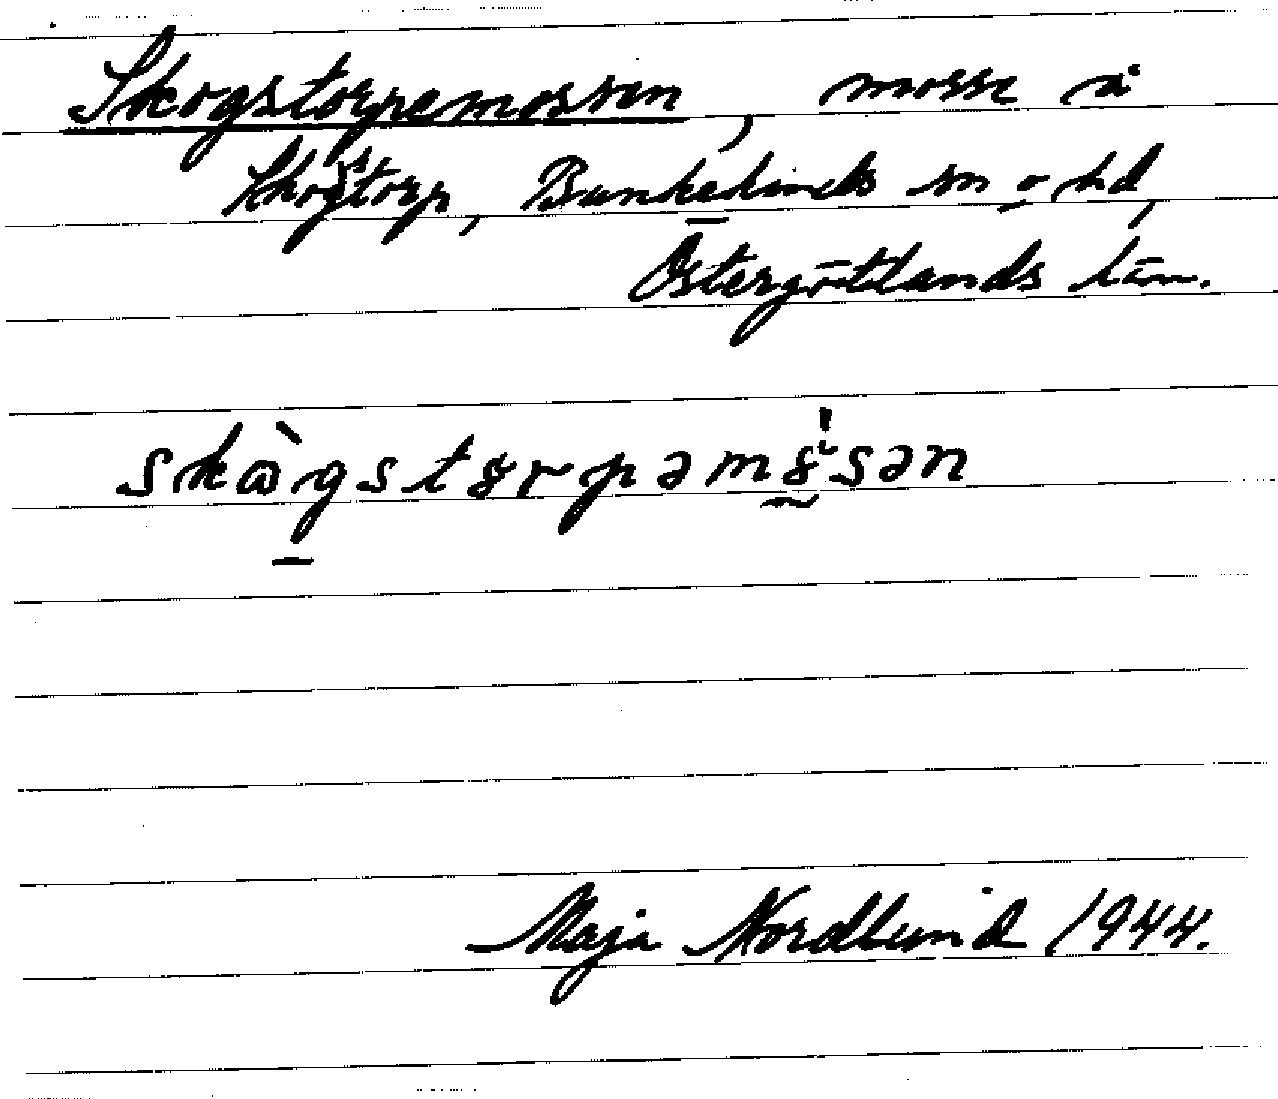 Skogstorpemossen, mosse å
Skogstorp, Bankekinds sn o hd,
Östergötlands län.
Maja Nordlund 1944.